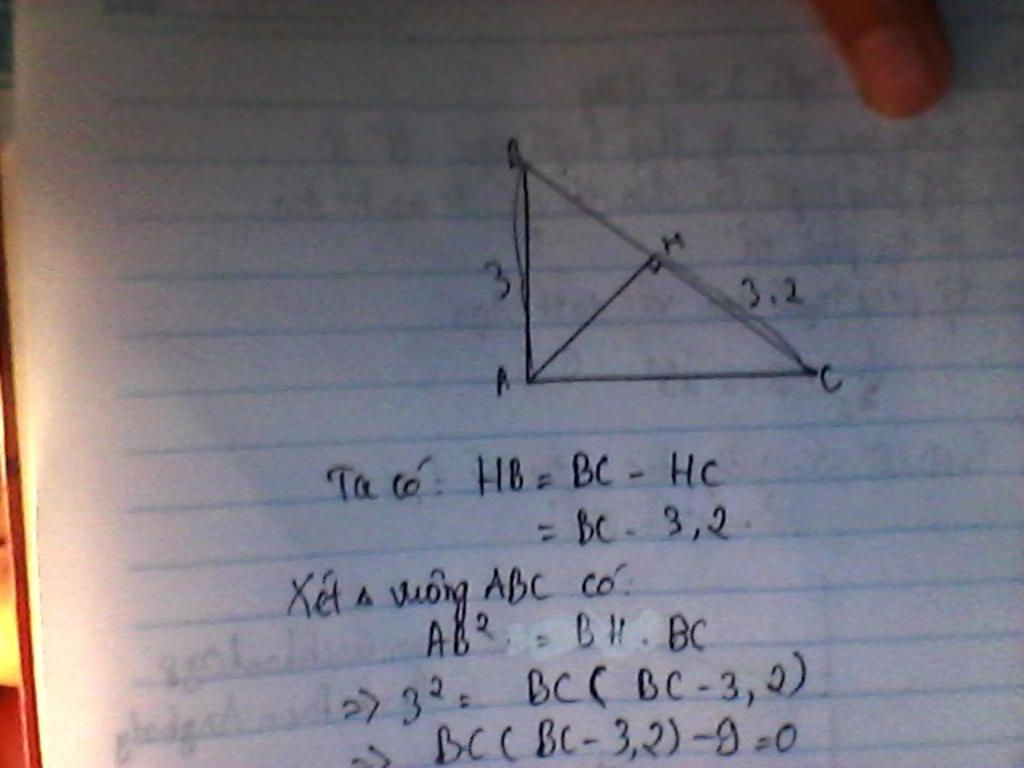 B
H
3
3,2
A
C
Ta có: HB = BC - HC
= BC - 3,2
Xét Δ vuông ABC có:
AB² = BH . BC
=> 3² = BC ( BC - 3,2)
=> BC ( BC - 3,2) - 9 = 0